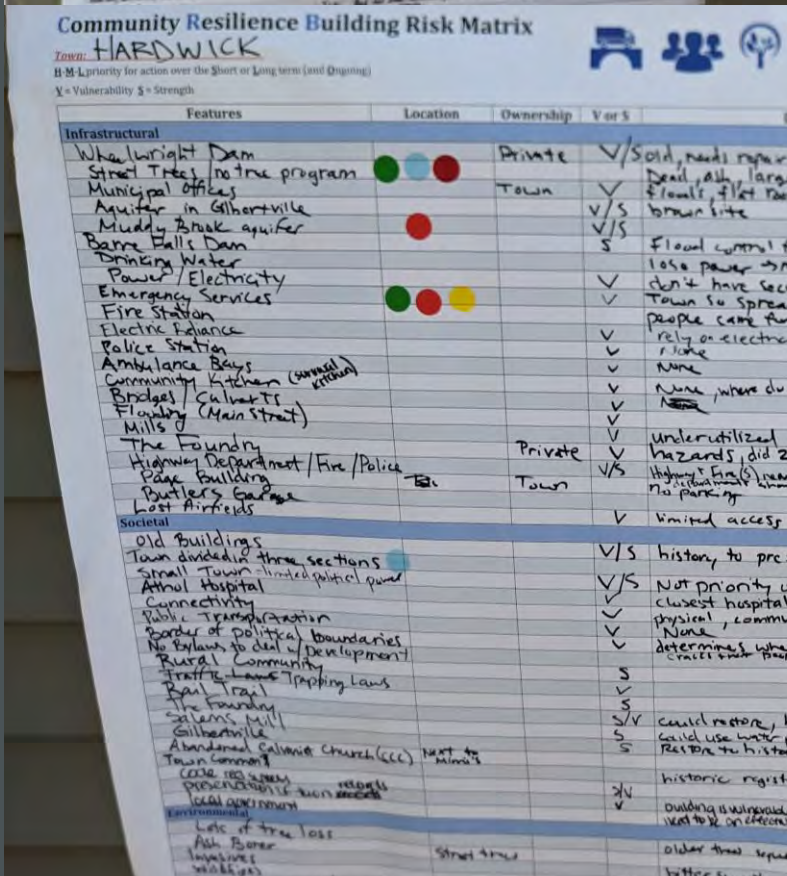 Community Resilience Building Risk Matrix
Town: HARDWICK
H-M-L priority for action over the Short or Long term (and Ongoing)
V = Vulnerability S = Strength
Features Location Ownership V or S
Infrastructural
Wheelwright Dam Private V/S old, needs repair
Street Trees/no tree program Dead, ash, larg
Municipal Offices Town V floods, flat roo
Aquifer in Gilbertville V/S brown site
Muddy Brook aquifer V/S
Barre Falls Dam S Flood control
Drinking Water lose power
Power/Electricity V don't have sec
Emergency Services V Town so sprea
Fire Station people came
Electric Reliance V rely on electric
Police Station V None
Ambulance Bays V None
Community Kitchen (survival kitchen) V None, where do
Bridges/Culverts V
Flooding (Main Street) V
Mills V underutilized
The Foundry Private V hazards, did
Highway Department/Fire/Police V/S Highway & Fire(S)
Page Building Town no parking
Butlers Garage
Lost Airfields V limited access
Societal
Old Buildings V/S history, to pre
Town divided in three sections
Small Town-limited political power V/S Not priority
Athol Hospital V closest hospital
Connectivity V physical, commu
Public Transportation V None
Border of political boundaries V determines whe
No Bylaws to deal w/Development
Rural Community S
Traffic Laws Trapping Laws V
Rail Trail S
The Foundry S/V could restore,
Salems Mill S could use water
Gilbertville S Restore to histo
Abandoned Calvinist Church (CCC) Next to Mimi's
Town Common historic regist
local government V building is vulnerabl
Environmental
Lots of tree loss
Ash Borer Street trees older trees
Invasives
wildfires